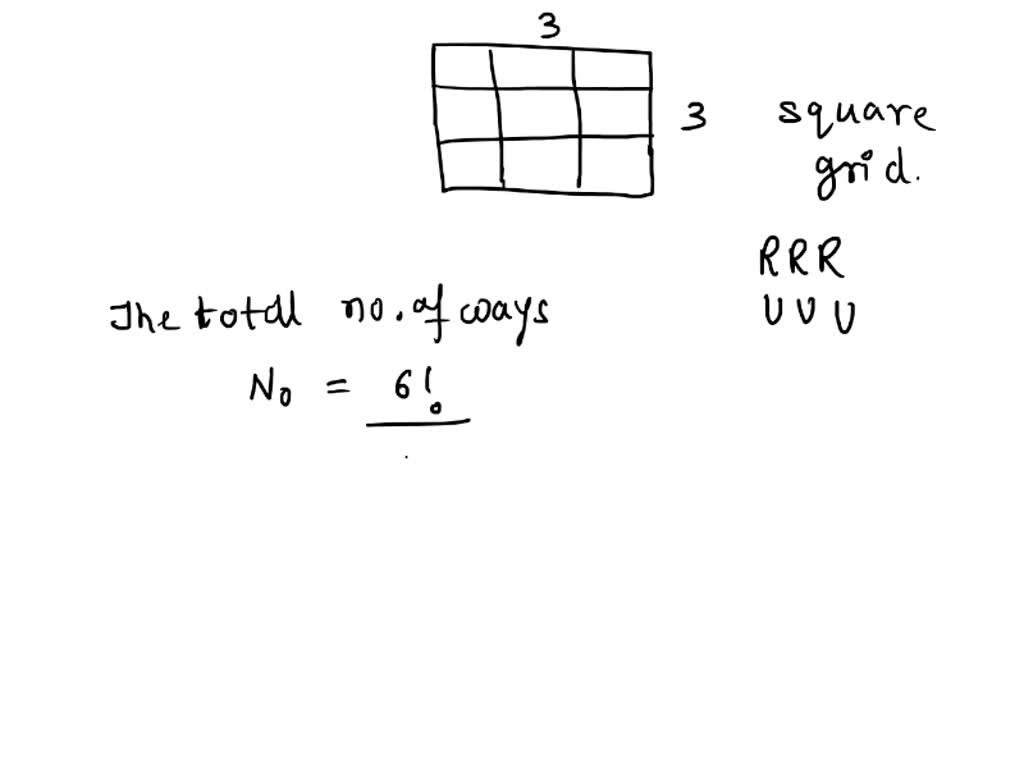 3
3 square
grid.
RRR
UUU
The total no. of ways
No = 6!